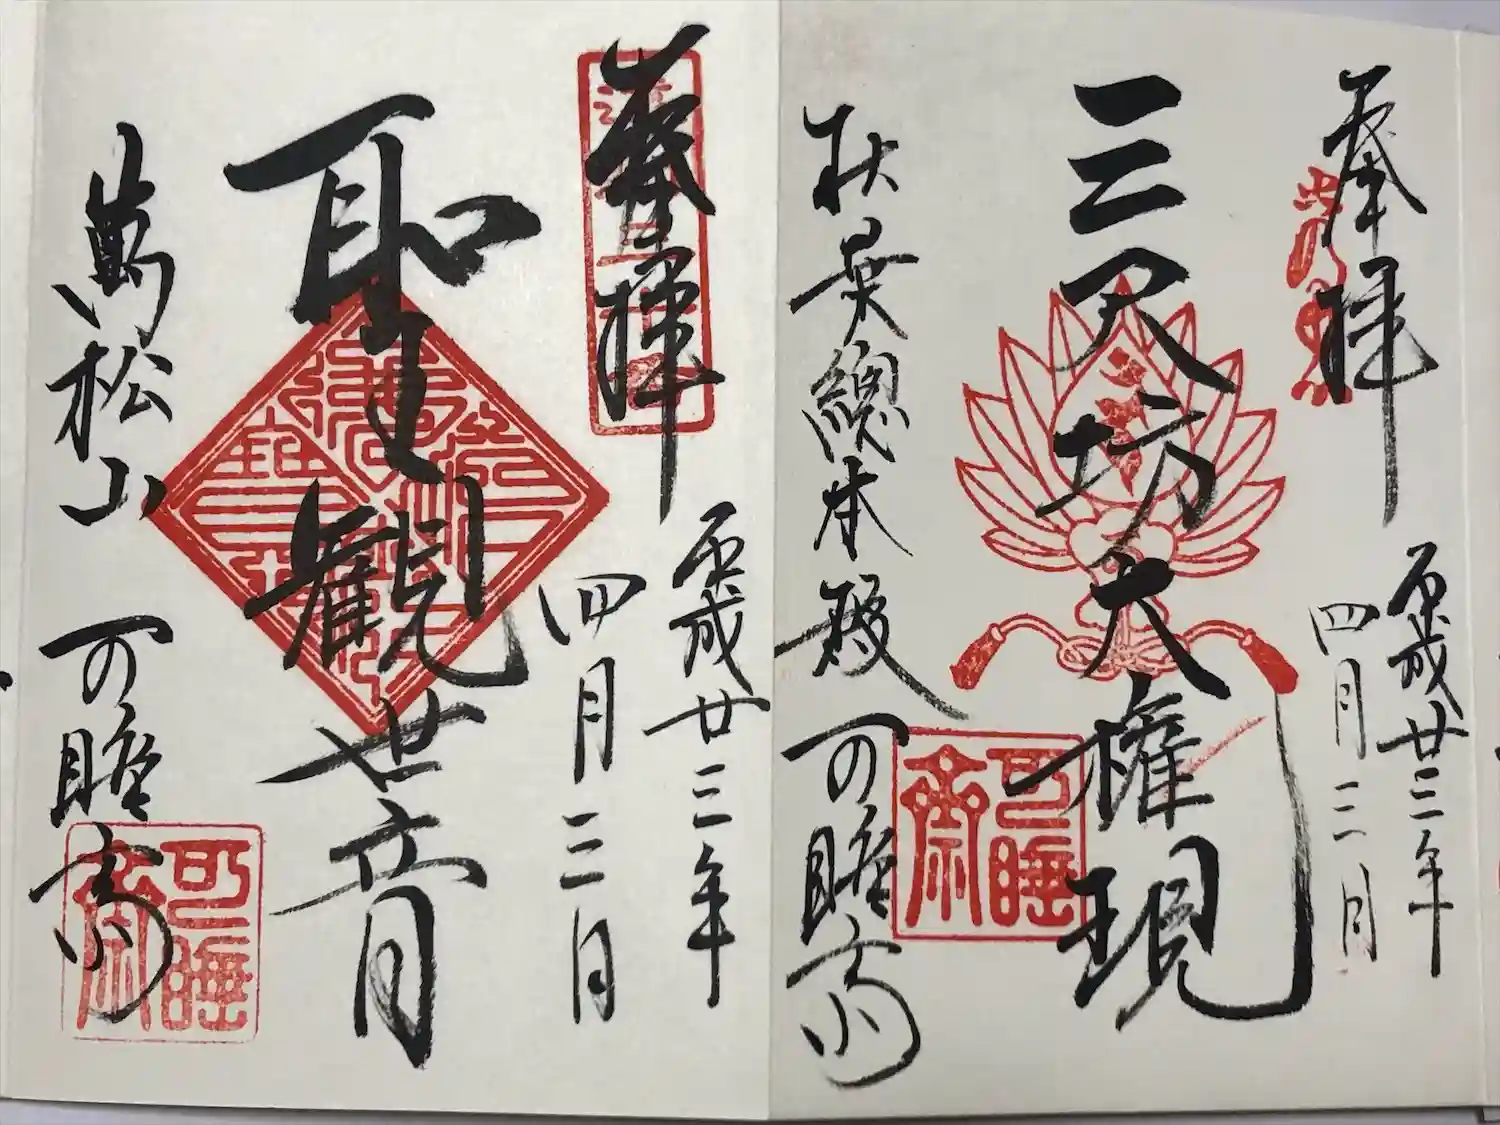 奉拝
平成廿三年
四月三日
三尺坊大権現
秋葉總本殿
可睡斎
可睡斎
奉拝
平成廿三年
四月三日
聖観世音
萬松山
可睡斎
可睡斎